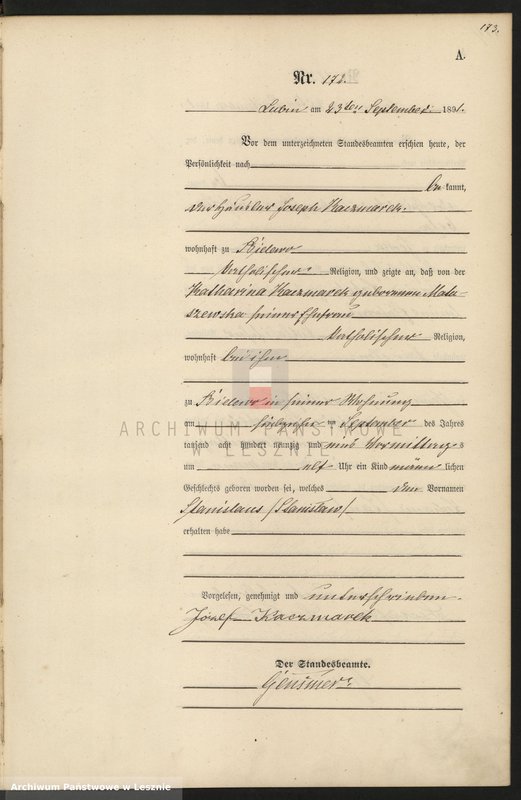 173.
A.
Nr. 172.
Lubin am 23ten September 1891.
Vor dem unterzeichneten Standesbeamten erschien heute, der
Persönlichkeit nach
be kannt,
der Häusler Joseph Kaczmarek.
wohnhaft zu
katholischer Religion, und zeigte an, daß von der
Katharina Kaczmarek geborenen Mata-
szewska seiner Ehefrau
katholischer Religion,
wohnhaft bei ihm
zu in seiner Wohnung
am siebzehn ten September des Jahres
tausend acht hundert neunzig und eins Vormittag s
um elf Uhr ein Kind männ lichen
Geschlechts geboren worden sei, welches den Vornamen
Stanislaus /Stanisław/
erhalten habe
Vorgelesen, genehmigt und unterschrieben.
Józef Kaczmarek
Der Standesbeamte.
ARCHIWUM PAŃSTWOWE
W LESZNIE
Archiwum Państwowe w Lesznie